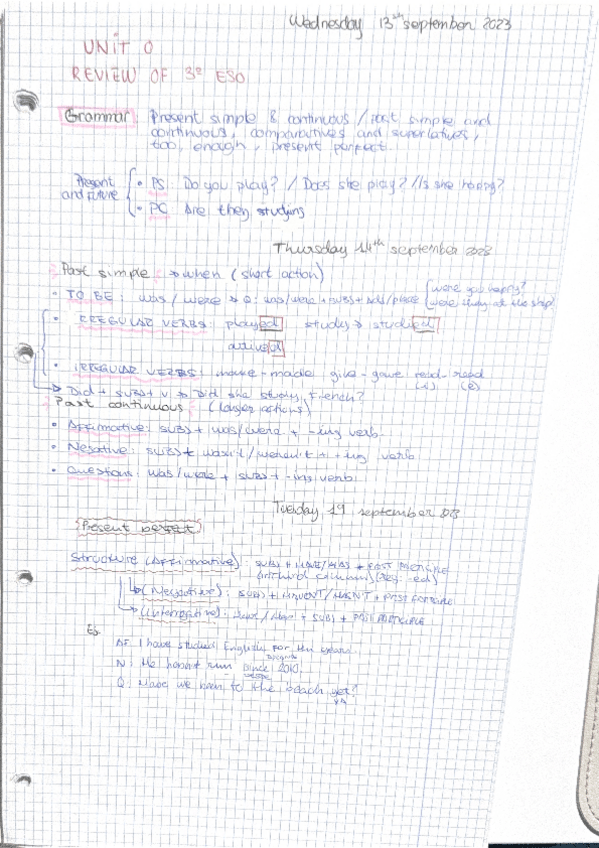 Wednesday 13th september 2023
UNIT 0
REVIEW OF 3º ESO
Grammar: Present simple & continuous / Past simple and
continuous, comparatives and superlatives,
too, enough, present perfect.
Present and future
• PS: Do you play? / Does she play? / Is she happy?
• PC: Are they studying
Thursday 14th september 2023
Past simple → when (short action)
• TO BE: was/were → Q: was/were + SUBJ + Adj/place (were you happy? were they at the shop
played study → studied
arrived
• IRREGULAR VERBS: make - made give - gave read - read
(i) (e)
→ Did + SUBJ + V → Did she study French?
Past continuous (longer actions)
• Affirmative: SUBJ + was/were + -ing verb
• Negative: SUBJ + wasn't/weren't + -ing verb
• Questions: was/were + SUBJ + -ing verb
Tuesday 19 september 23
Present perfect
Structure (Affirmative): SUBJ + HAVE/HAS + PAST PARTICIPLE
(third column) (Reg: -ed)
(Negative): SUBJ + HAVEN'T/HASN'T + PAST PARTICIPLE
(Interrogative): Have/Has + SUBJ + PAST PARTICIPLE
Ex
AF: I have studied English for ten years.
N: He hasn't run since 2010.
Q: Have we been to the beach yet?
ya